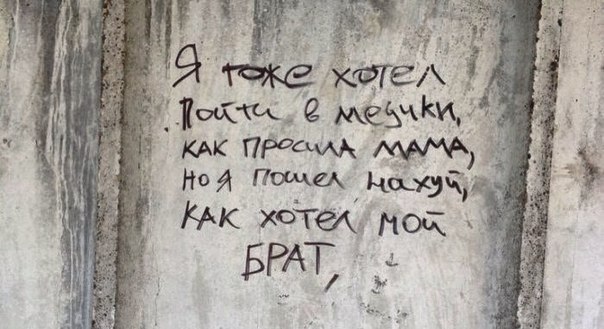 Я тоже хотел
Пойти в медики,
как просила мама,
но я пошел нахуй,
как хотел мой
БРАТ,